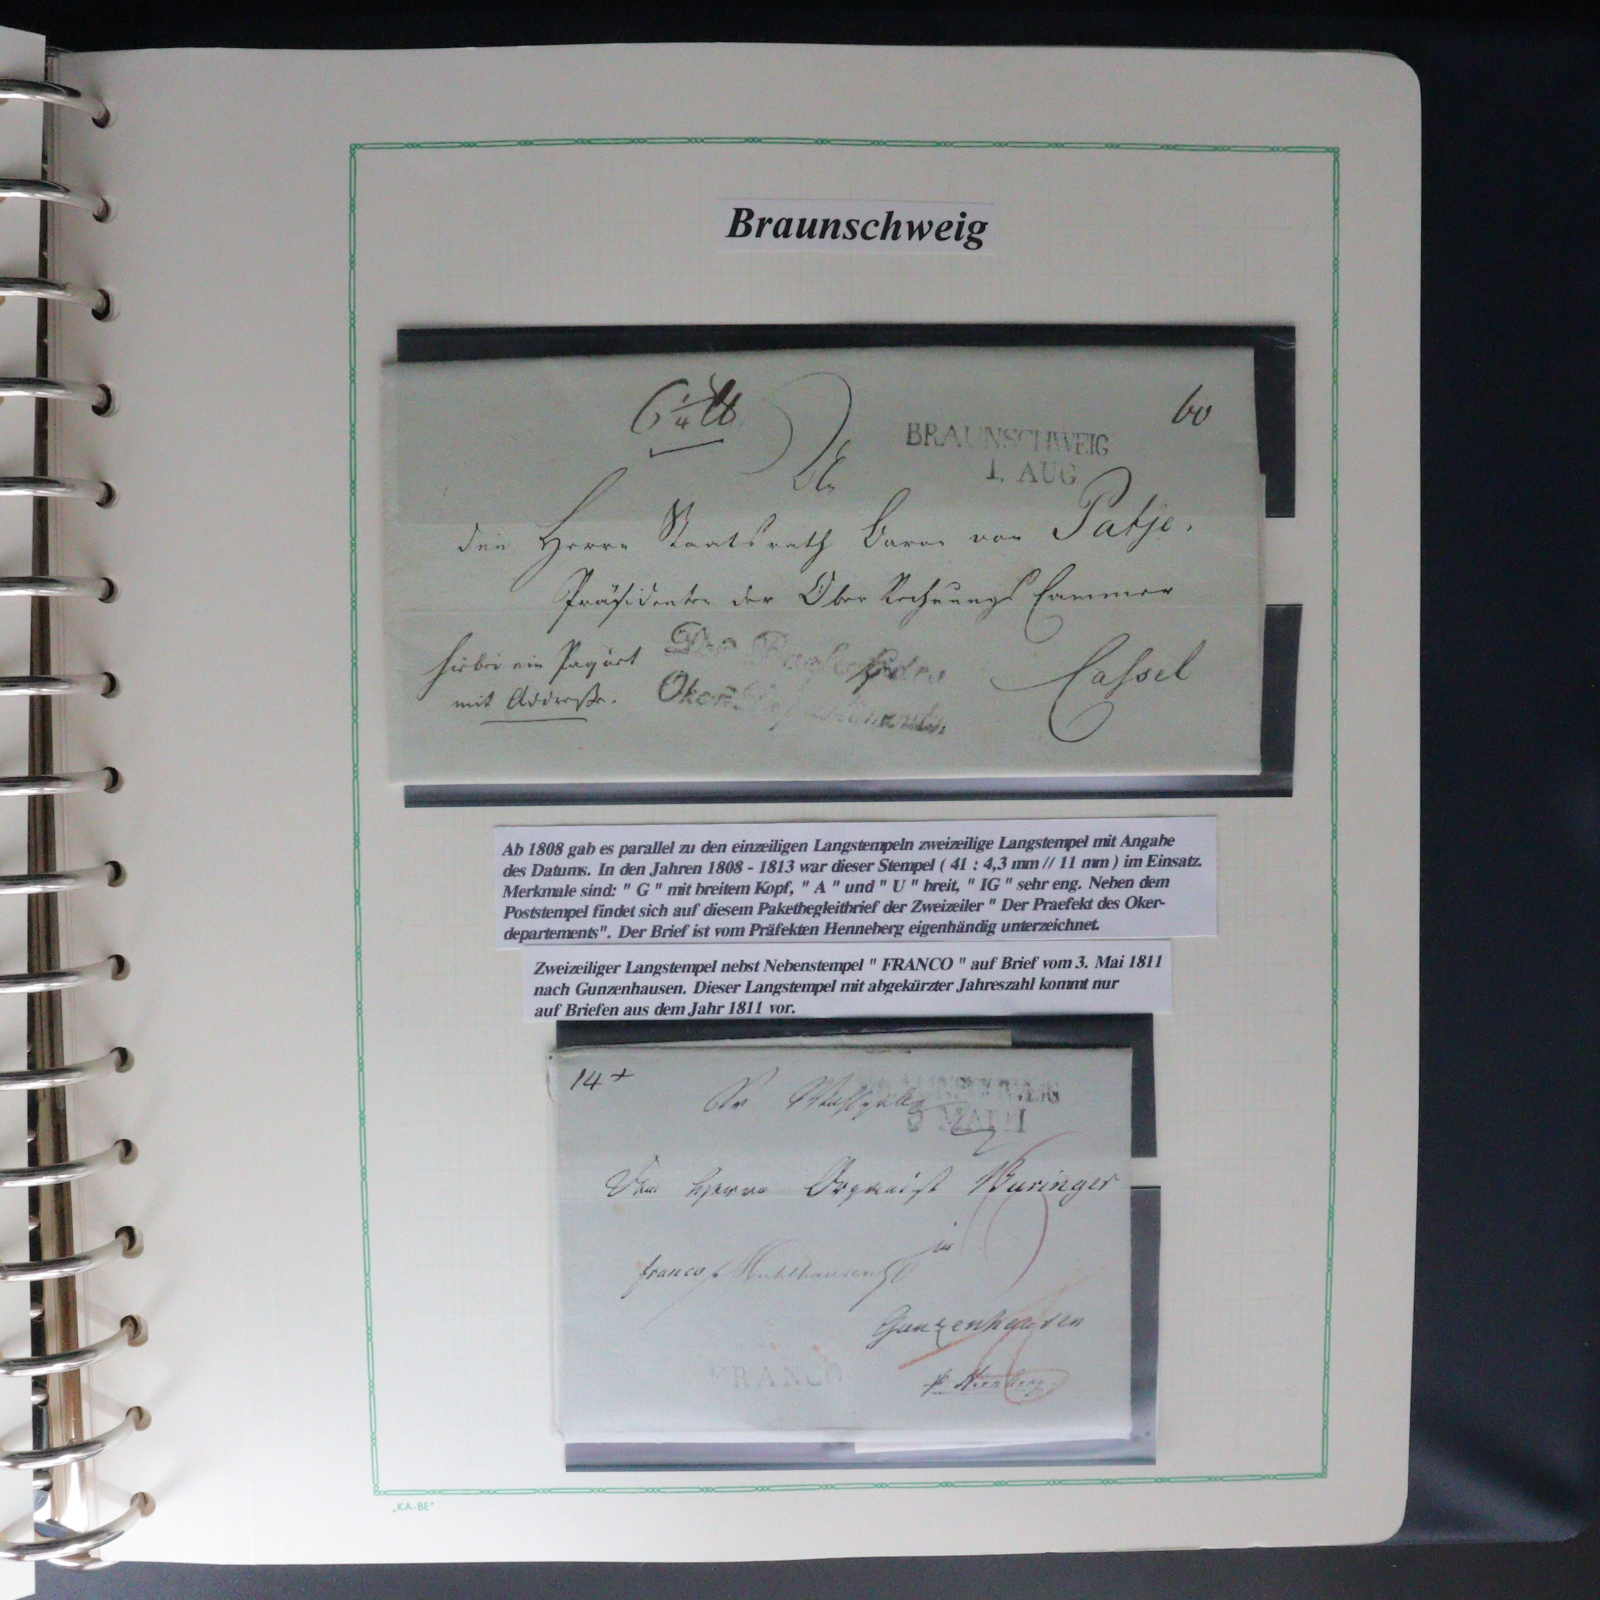 Braunschweig
6 1/4 lb
60
BRAUNSCHWEIG
1. AUG
An
den Herrn Staatsrath Baron von Patje,
Präsidenten der Ober Rechnungs Cammer
hierbei ein Paquet
mit Addresse.
Cassel
Der
Oker
Ab 1808 gab es parallel zu den einzeiligen Langstempeln zweizeilige Langstempel mit Angabe
des Datums. In den Jahren 1808 - 1813 war dieser Stempel ( 41 : 4,3 mm // 11 mm ) im Einsatz.
Merkmale sind: " G " mit breitem Kopf, " A " und " U " breit, " IG " sehr eng. Neben dem
Poststempel findet sich auf diesem Paketbegleitbrief der Zweizeiler " Der Praefekt des Oker-
departements". Der Brief ist vom Präfekten Henneberg eigenhändig unterzeichnet.
Zweizeiliger Langstempel nebst Nebenstempel " FRANCO " auf Brief vom 3. Mai 1811
nach Gunzenhausen. Dieser Langstempel mit abgekürzter Jahreszahl kommt nur
auf Briefen aus dem Jahr 1811 vor.
14 +
Herrn Organist Wuringer
in
franco
Gunzenhausen
FRANCO
„KA-BE"